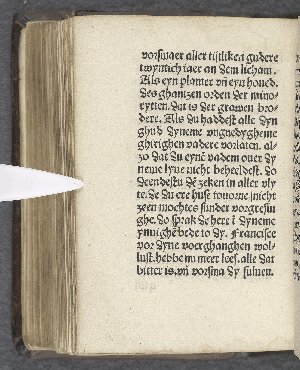 vorsmaer aller tijtliken gudere
twyntich iaer an dem licham.
Als eyn planter vn eyn houed.
des ghantzen orden der mino-
rytten. dat is der grawen bro-
dere. Als du haddest alle dyn
ghud dyneme vngnedyghene
ghitighen vadere vorlaten. al-
zo dat du eyne vadem ouer dy
neme lyue nicht beheeldest. do
deendestu de zeken in aller vly
te. de du ere hust tovorne nicht
zeen mochtes sunder vorgresin
ghe. do sprak de here i dyneme
ynnighe bede to dy. Francisce
vor dyne voerghanghen wol-
lust. hebbe nu meer leef. alle dat
bitter is. vn vorsma dy suluen.